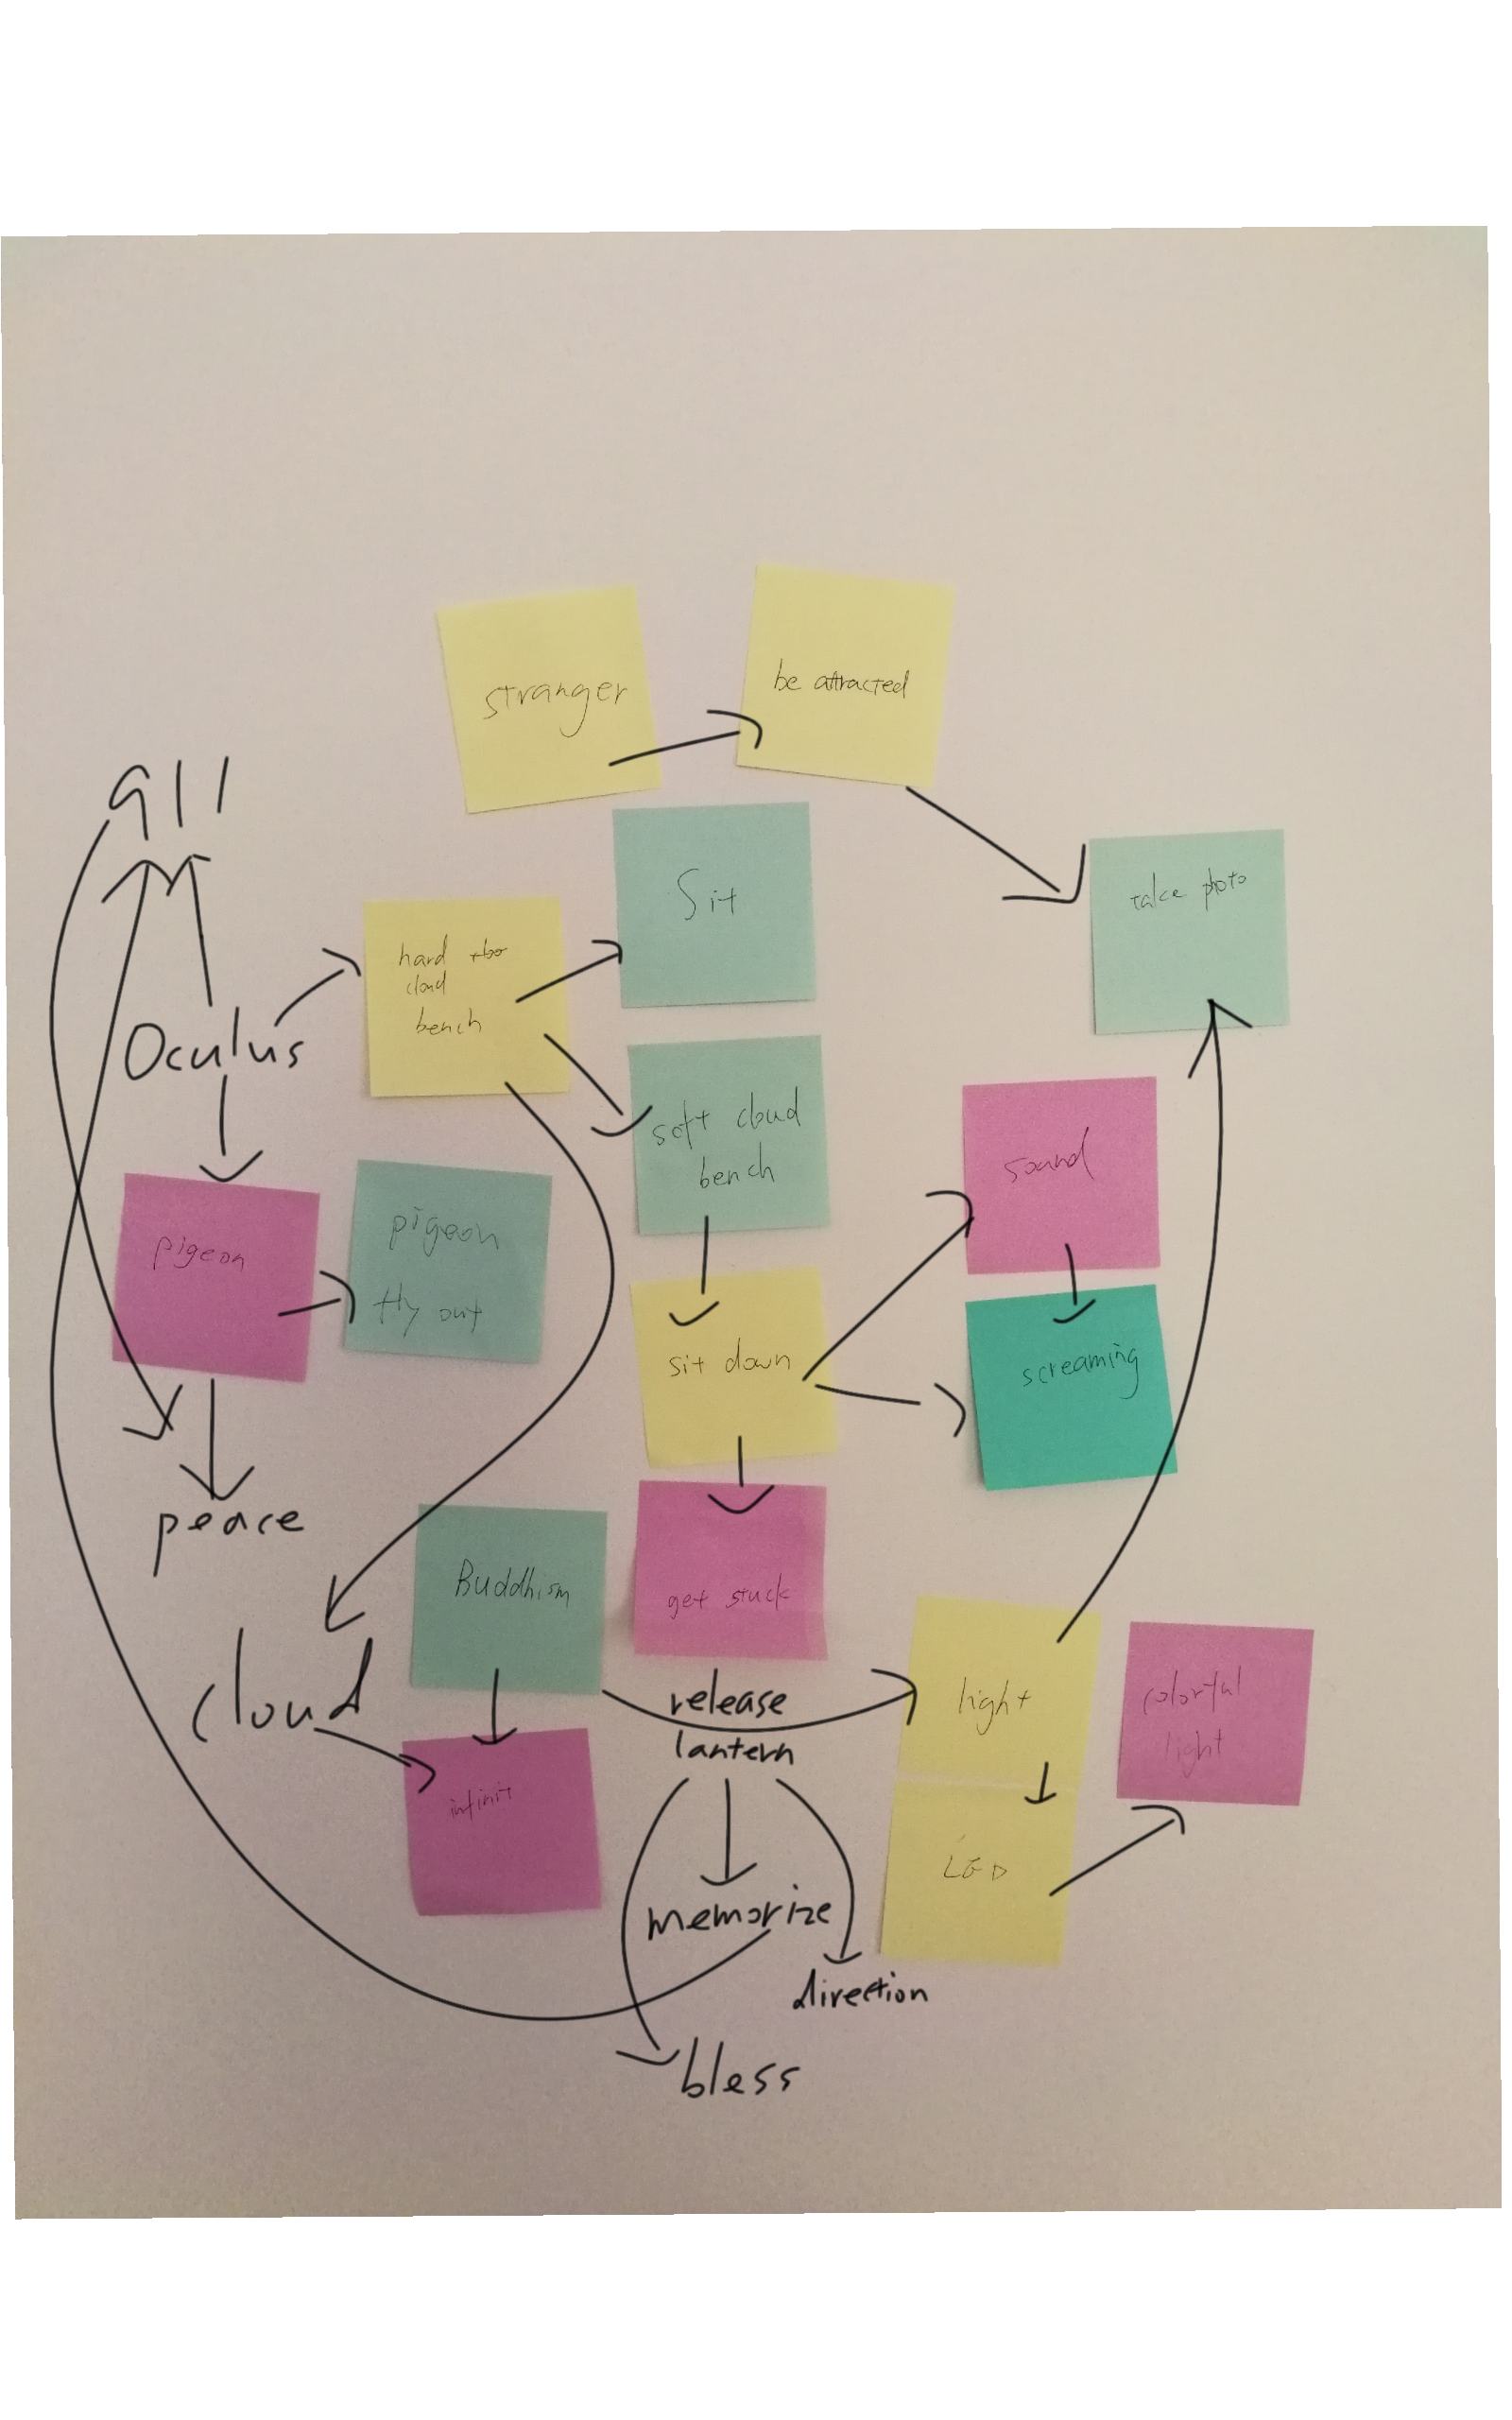 stranger
be attracted
911
Sit
take photo
hard
cloud
bench
Oculus
soft cloud
bench
sound
pigeon
pigeon
fly out
sit down
screaming
peace
Buddhism
get stuck
cloud
release
lantern
light
colorful
light
infinit
LED
memorize
direction
bless